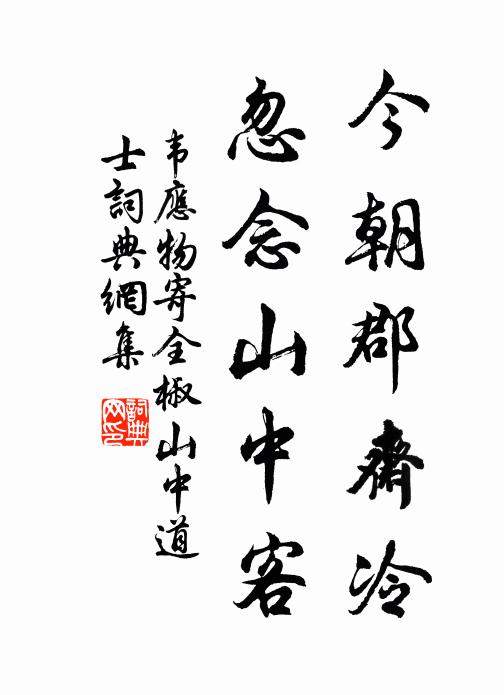 今朝郡齋冷
忽念山中客
韦應物寄全椒山中道
士詞典網集
詞典网印